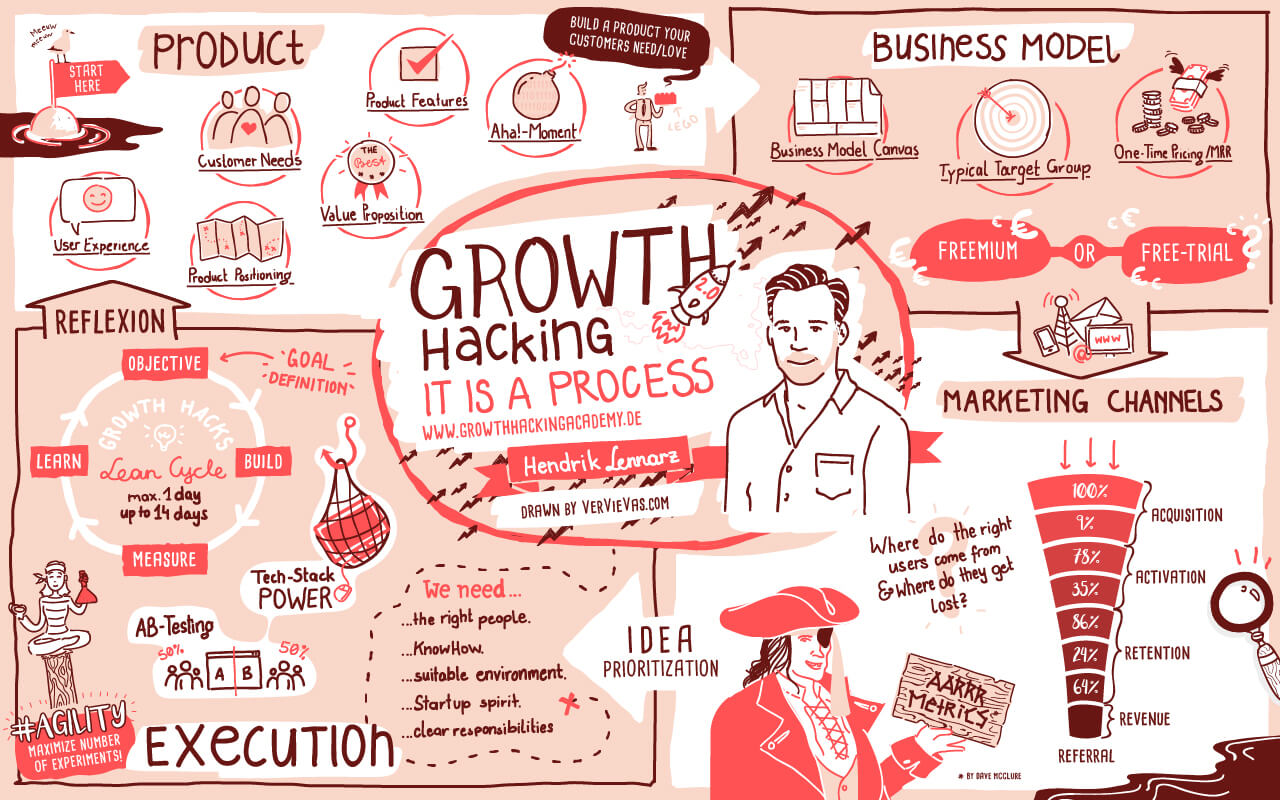 Meeuw
meeuw
START
HERE
PRODUCT
Customer Needs
Product Features
Aha!-Moment
BUILD A PRODUCT YOUR
CUSTOMERS NEED/LOVE
LEGO
THE
Best
Value Proposition
User Experience
Product Positioning
BUSINESS MODEL
Business Model Canvas
Typical Target Group
One-Time Pricing/MRR
FREEMIUM
OR
FREE-TRIAL
?
€
€
€
€
€
GROWTH
Hacking
2.0
IT IS A PROCESS
WWW.GROWTHHACKINGACADEMY.DE
Hendrik Lennarz
DRAWN BY VERVIEVAS.COM
WWW
@
MARKETING CHANNELS
100%
9%
78%
35%
86%
24%
64%
ACQUISITION
ACTIVATION
RETENTION
REVENUE
REFERRAL
Where do the right
users come from
& where do they get
lost?
AARRR
Metrics*
* BY DAVE MCCLURE
IDEA
PRIORITIZATION
We need...
...the right people.
...KnowHow.
...suitable environment.
...Startup spirit.
...clear responsibilities
REFLEXION
OBJECTIVE
GOAL
DEFINITION
GROWTH HACKS
LEARN
Lean Cycle
BUILD
max. 1 day
up to 14 days
MEASURE
Tech-Stack
POWER
AB-Testing
50%
50%
A
B
#AGILITY
MAXIMIZE NUMBER
OF EXPERIMENTS!
EXECUTION